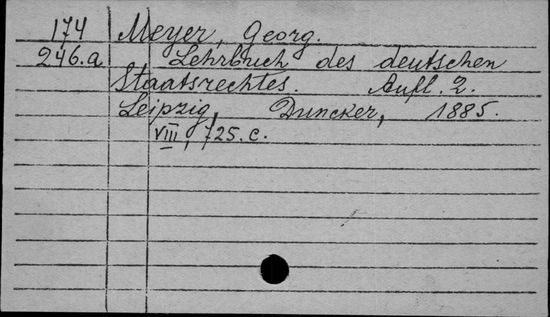 174 Meyer, Georg.
246.a Lehrbuch des deutschen
Staatsrechtes. Aufl. 2.
Leipzig, Duncker, 1885.
VIII, 725. c.